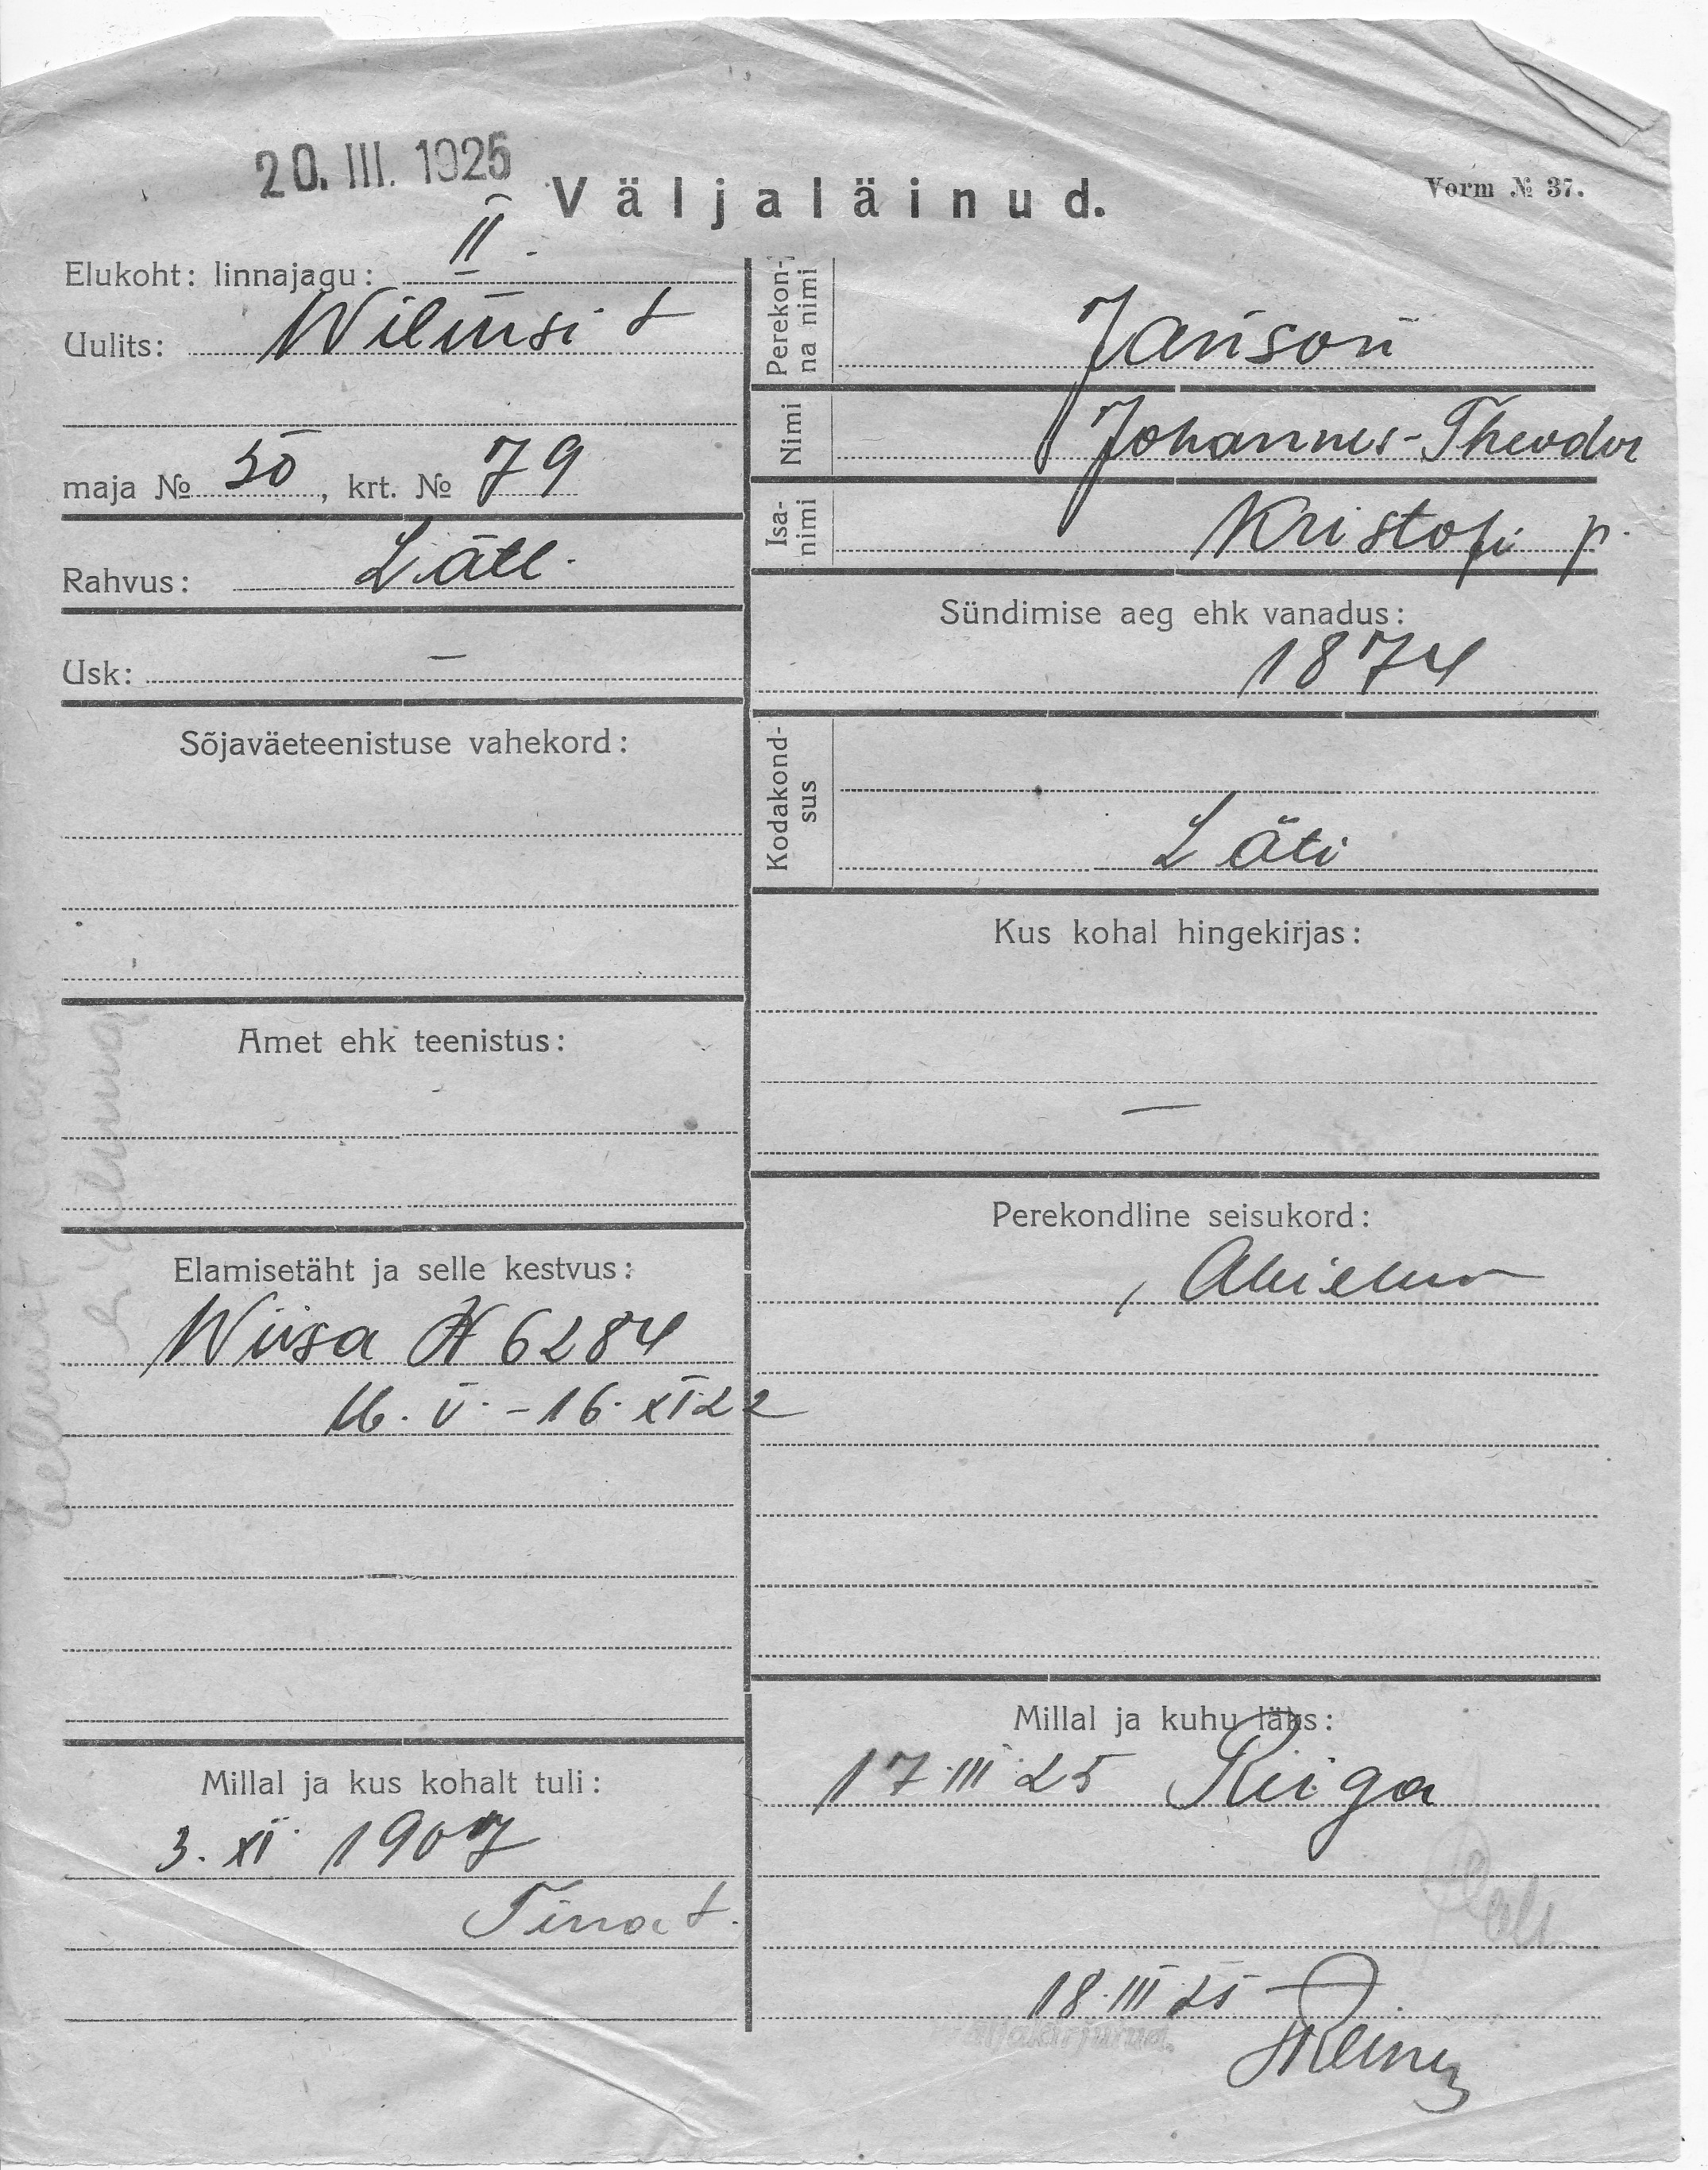 20. III. 1925
Väljaläinud.
Vorm № 37.
Elukoht: linnajagu: II
Uulits: Wilmsi t
maja № 50, krt. № 79
Rahvus: Lätl.
Usk: —
Sõjaväeteenistuse vahekord:
Amet ehk teenistus:
Elamisetäht ja selle kestvus:
Wiisa № 6284
16. V. – 16. XI 22
Millal ja kus kohalt tuli:
3. XI. 1907
Tina t.
Perekon-
na nimi
Janson
Nimi Johannes-Theodor
Isa-
nimi
Kristofi p.
Sündimise aeg ehk vanadus:
1874
Kodakond-
sus
Läti
Kus kohal hingekirjas:
—
Perekondline seisukord:
Abielus
Millal ja kuhu läks:
17 III 25 Riiga
18. III 25